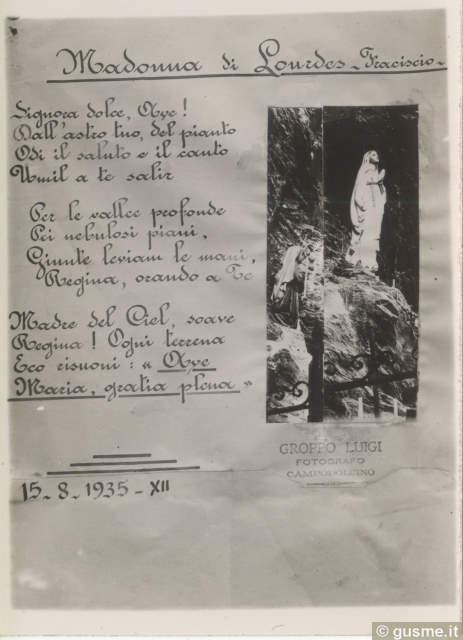 Madonna di Lourdes - Fraciscio -
Signora dolce, Ave !
Dall'astro tuo, del pianto
Odi il saluto e il canto
Umil a te salir
Per le vallee profonde
Pei nebulosi piani,
Giunte leviam le mani,
Regina, orando a Te
Madre del Ciel, soave
Regina ! Ogni terrena
Eco risuoni : « Ave
Maria, gratia plena »
GROPPO LUIGI
FOTOGRAFO
CAMPODOLCINO
15-8-1935-XII
© gusme.it